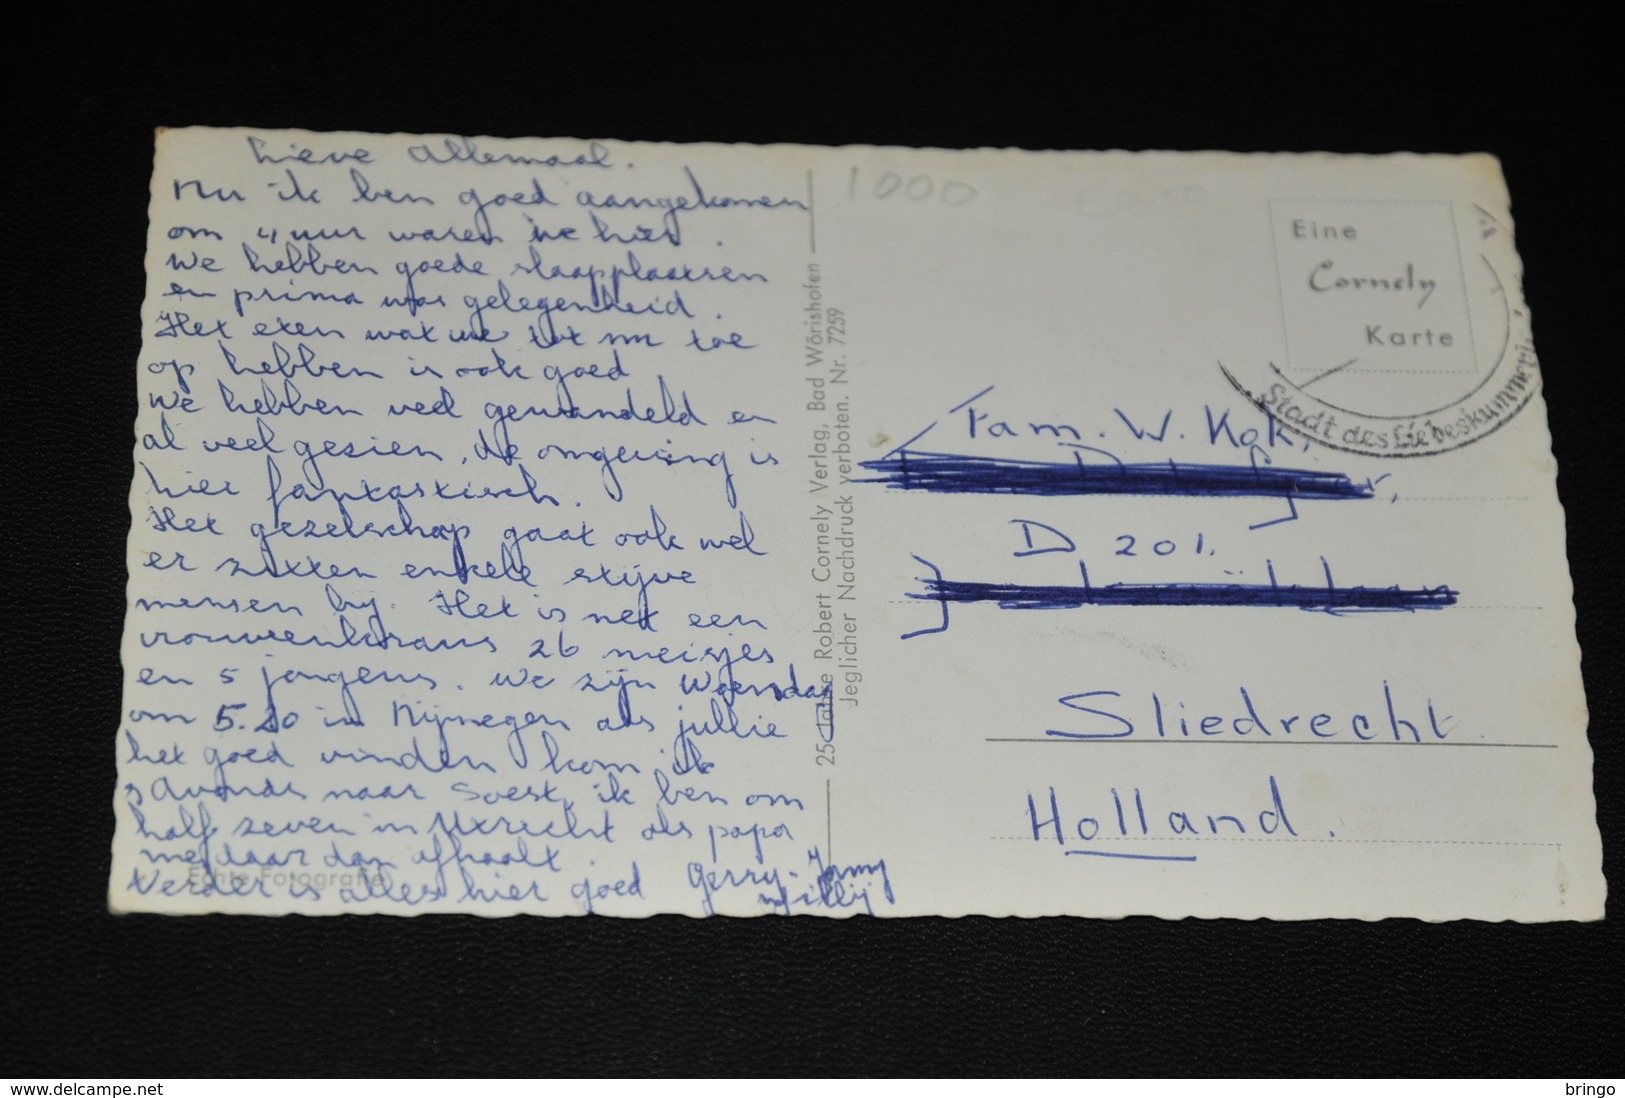 Lieve Allemaal.
Nu ik ben goed aangekomen
om 4 uur waren we hier.
We hebben goede slaapplaatsen
en prima was gelegenheid.
Het eten wat we tot nu toe
op hebben is ook goed
We hebben veel gewandeld en
al veel gezien, de omgeving is
hier fantastisch.
Het gezelschap gaat ook wel
er zitten enkele stijve
mensen bij. Het is net een
vrouwenkrans 26 meisjes
en 5 jongens. We zijn Woensdag
om 5.20 in Nijmegen als jullie
het goed vinden kom ik
s Avonds naar Soest, ik ben om
half zeven in Utrecht als papa
me daar dan afhaalt.
Verder is alles hier goed Gerry-Janny
Willy
Echte Fotografie
25 Jahre Robert Cornely Verlag, Bad Wörishofen
Jeglicher Nachdruck verboten. Nr. 7259
1000
Eine
Cornely
Karte
Stadt des Liebeskummers
Fam. W. Kok,
D 201.
Sliedrecht.
Holland.
https://www.delcampe.net
bringo